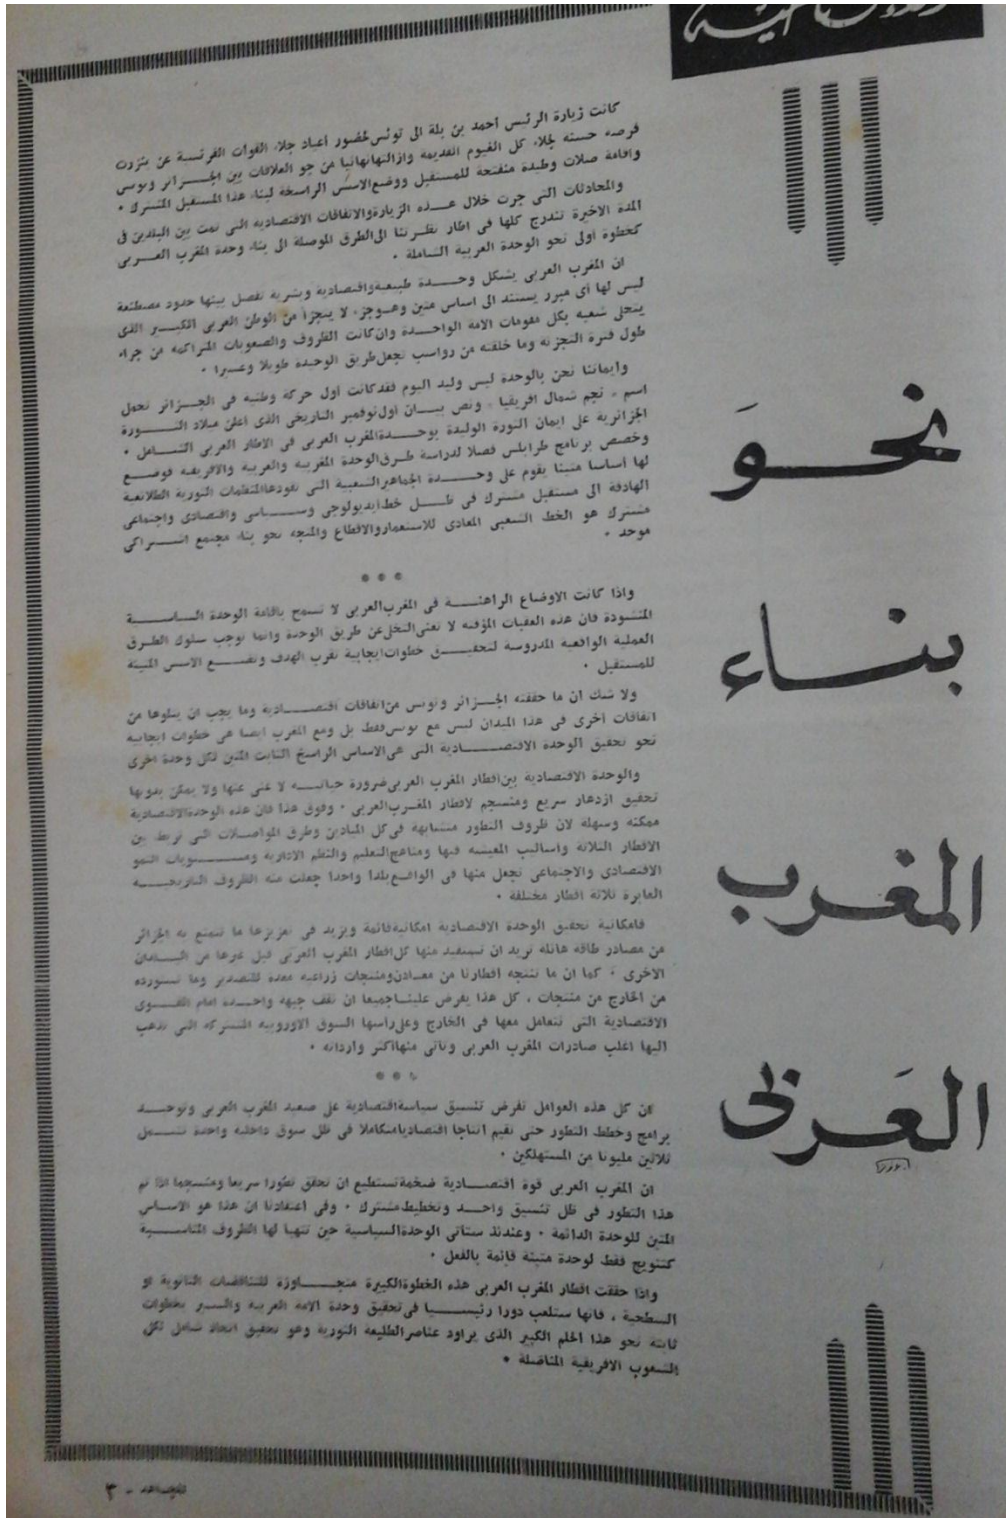 نحو
بناء
المغرب
العربي
كانت زيارة الرئيس احمد بن بلة الى تونس لحضور أعياد جلاء القوات الفرنسية عن بنزرت
فرصة حسنة لجلاء كل الغيوم القديمة وازالتها نهائيا من جو العلاقات بين الجزائر وتونس
واقامة صلات وطيدة متفتحة للمستقبل ووضع الاسس الراسخة لبناء هذا المستقبل المشترك .
والمحادثات التي جرت خلال هذه الزيارة والاتفاقات الاقتصادية التي تمت بين البلدين في
المدة الاخيرة تندرج كلها في اطار نظرتنا الى الطرق الموصلة الى بناء وحدة المغرب العربي
كخطوة أولى نحو الوحدة العربية الشاملة .
ان المغرب العربي يشكل وحدة طبيعية واقتصادية وبشرية تفصل بينها حدود مصطنعة
ليس لها أى مبرر يستند الى اساس متين وهو جزء لا يتجزأ من الوطن العربي الكبير الذى
يتحلى شعبه بكل مقومات الامة الواحدة وان كانت الظروف والصعوبات المتراكمة من جراء
طول فترة التجزئة وما خلفته من رواسب تجعل طريق الوحيدة طويلا وعسيرا .
وايماننا نحن بالوحدة ليس وليد اليوم فقد كانت اول حركة وطنية في الجزائر تحمل
اسم « نجم شمال افريقيا » ونص بيان اول نوفمبر التاريخي الذى اعلن ميلاد الثورة
الجزائرية على ايمان الثورة الوليدة بوحدة المغرب العربي في الاطار العربي الشامل .
وخصص برنامج طرابلس فصلا لدراسة طرق الوحدة المغربية والعربية والافريقية فوضع
لها أساسا متينا يقوم على وحدة الجماهير الشعبية التي تقودها المنظمات الثورية الطلائعية
الهادفة الى مستقبل مشترك في ظل خط ايديولوجي وسياسى واقتصادى واجتماعى
مشترك هو الخط الشعبي المعادى للاستعمار والاقطاع والمتجه نحو بناء مجتمع اشتراكى
موحد .
واذا كانت الاوضاع الراهنة في المغرب العربي لا تسمح باقامة الوحدة السياسية
المنشودة فان هذه العقبات المؤقتة لا تعنى التخلى عن طريق الوحدة وانما توجب سلوك الطرق
العملية الواقعية المدروسة لتحقيق خطوات ايجابية تقرب الهدف وتضع الاسس المتينة
للمستقبل .
ولا شك ان ما حققته الجزائر وتونس من اتفاقات اقتصادية وما يجب ان يتلوها من
اتفاقات أخرى في هذا الميدان ليس مع تونس فقط بل ومع المغرب ايضا هي خطوات ايجابية
نحو تحقيق الوحدة الاقتصادية التي هي الاساس الراسخ الثابت المتين لكل وحدة أخرى
والوحدة الاقتصادية بين اقطار المغرب العربي ضرورة حياتية لا غنى عنها ولا يمكن بدونها
تحقيق ازدهار سريع ومنسجم لاقطار المغرب العربي . وفوق هذا فان هذه الوحدة الاقتصادية
ممكنة وسهلة لان ظروف التطور متشابهة في كل الميادين وطرق المواصلات التي تربط بين
الاقطار الثلاثة واساليب المعيشة فيها ومناهج التعليم والنظم الادارية ومستويات النمو
الاقتصادى والاجتماعى تجعل منها في الواقع بلدا واحدا جعلت منه الظروف التاريخية
العابرة ثلاثة أقطار مختلفة .
فامكانية تحقيق الوحدة الاقتصادية امكانية قائمة ويزيد في تعزيزها ما تتمتع به الجزائر
من مصادر طاقة هائلة نريد ان تستفيد منها كل اقطار المغرب العربي قبل غيرها من البلدان
الاخرى . كما ان ما تنتجه أقطارنا من معادن ومنتجات زراعية معدة للتصدير وما تستورده
من الخارج من منتجات ، كل هذا يفرض علينا جميعا ان نقف جبهة واحدة امام القوى
الاقتصادية التي نتعامل معها في الخارج وعلى رأسها السوق الاوروبية المشتركة التي تذهب
اليها اغلب صادرات المغرب العربي وتأتي منها اكثر وارداته .
ان كل هذه العوامل تفرض تنسيق سياسة اقتصادية على صعيد المغرب العربي وتوحيد
برامج وخطط التطور حتى نقيم انتاجا اقتصاديا متكاملا في ظل سوق داخلية واحدة تشمل
ثلاثين مليونا من المستهلكين .
ان المغرب العربي قوة اقتصادية ضخمة تستطيع ان تحقق تطورا سريعا ومنسجما اذا تم
هذا التطور في ظل تنسيق واحد وتخطيط مشترك . وفي اعتقادنا ان هذا هو الاساس
المتين للوحدة الدائمة . وعندئذ ستأتي الوحدة السياسية حين تتهيأ لها الظروف المناسبة
كتتويج فقط لوحدة متينة قائمة بالفعل .
واذا حققت اقطار المغرب العربي هذه الخطوة الكبيرة متجاوزة للتناقضات الثانوية او
السطحية ، فانها ستلعب دورا رئيسيا في تحقيق وحدة الامة العربية والسير بخطوات
ثابتة نحو هذا الحلم الكبير الذى يراود عناصر الطليعة الثورية وهو تحقيق اتحاد شامل لكل
الشعوب الافريقية المناضلة .
المجاهد - ٣